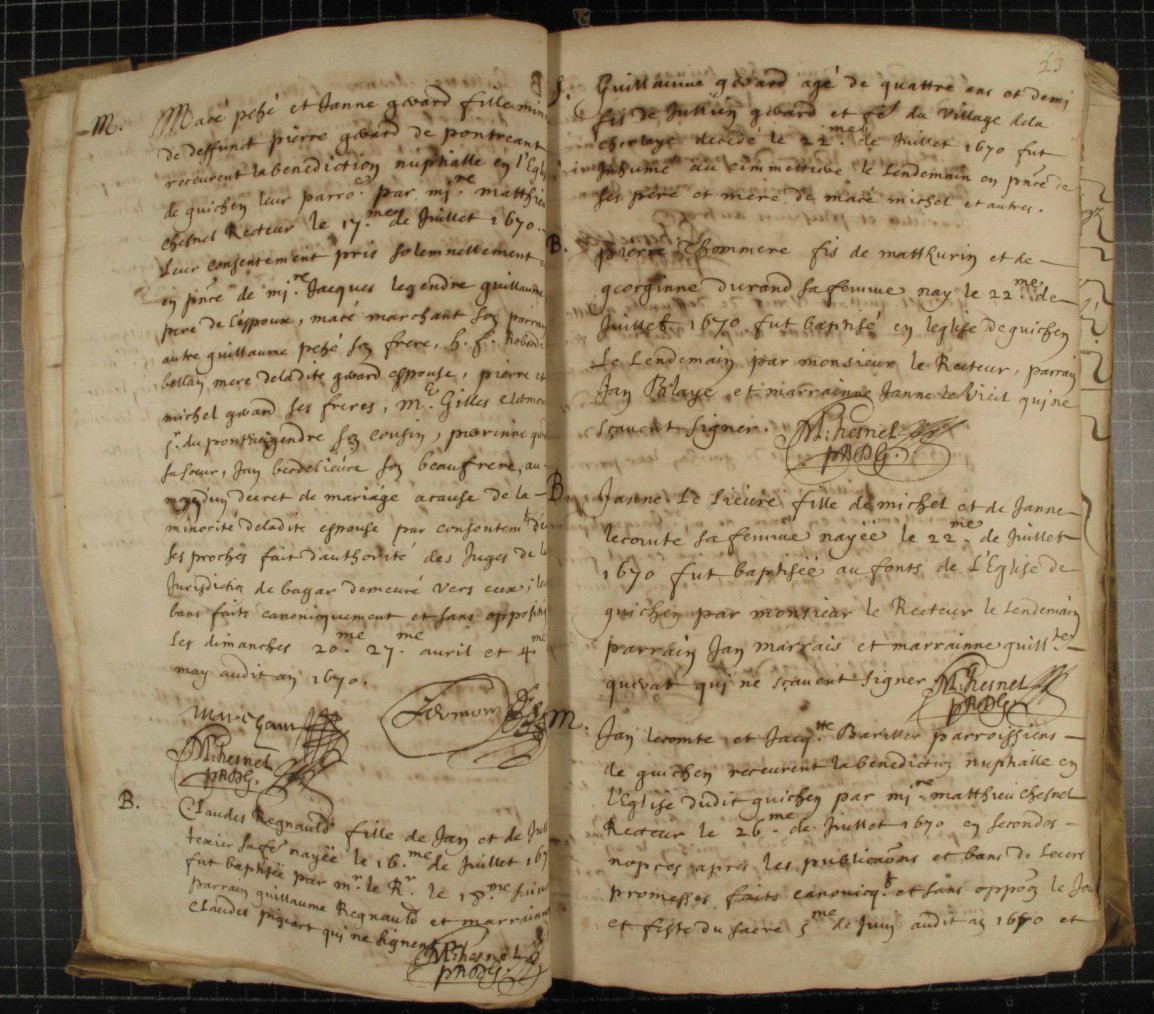 M. Macé pché et Janne gward fille min
de deffunct pierre gward de pontreant
receurent la benediction nuptialle en l'Egl
de guichen leur parro.e par mi.re matthieu
chesnel Recteur le 17.me de Juillet 1670.
Leur consentement pris solemnellement
en pnce de mi.re Jacques legendre guillaume
pere de l'espoux, macé marchant son parrain
autre guillaume pché son frere, h. f.
bellan mere deladite gward espouse, pierre et
michel gward ses freres, m.e Gilles
s.r du son cousin, perrinne
sa soeur, Jan son beaufrere, au
moyen du decret de mariage acause de la
minorité deladite espouse par consentem.t de
ses proches fait d'authorité des Juges de la
Jurisdiction de bagar demeuré vers eux; les
bans faits canonicquement et sans opposition
Les dimanches 20.me 27.me avril et 4.me
may audit an 1670.
M:chesnel
PRDG.
B. Claudes Regnauld fille de Jan et de
texier sa fe nayée le 16.me de Juillet 167
fut baptisée par m.r le R.r le 18.me
parrain guillaume Regnauld et marrainne
Claudes piguart qui ne signent
M:chesnel
PRDG.
23
S. Guillaume gward agé de quattre ans et demi
fis de Jullien gward et fe du village dela
decedé le 22.me de Juillet 1670 fut
Inhumé au cimmettiere le Lendemain en pnce de
ses pere et mere de macé michel et autres.
B. pierre Thommere fis de matthurin et de
georginne durand sa femme nay le 22.me de
Juillet 1670 fut baptisé en leglise de guichen
Le Lendemain par monsieur le Recteur, parrain
Jan Blaye, et marrainne Janne le Vieil qui ne
sçavent signer. M:chesnel
PRDG.
B. Janne Le Lieure fille de michel et de Janne
lecomte sa femme nayée le 22.me de Juillet
1670 fut baptisée au fonts de L'Eglise de
guichen par monsieur le Recteur le Lendemain
parrain Jan marrais et marrainne guill.te
quevat qui ne sçavent signer M:chesnel
PRDG.
M. Jan lecomte et Jacq.tte Bariller parroissiens
de guichen receurent la benediction nuptialle en
l'Eglise dudit guichen par mi.re matthieu chesnel
Recteur le 26.me de Juillet 1670 en secondes
nopces apres les publicaons et bans de Leurs
promesses faits canonicq.t et sans oppoon le Jour
et feste du sacre 5.me de Juin audit an 1670 et